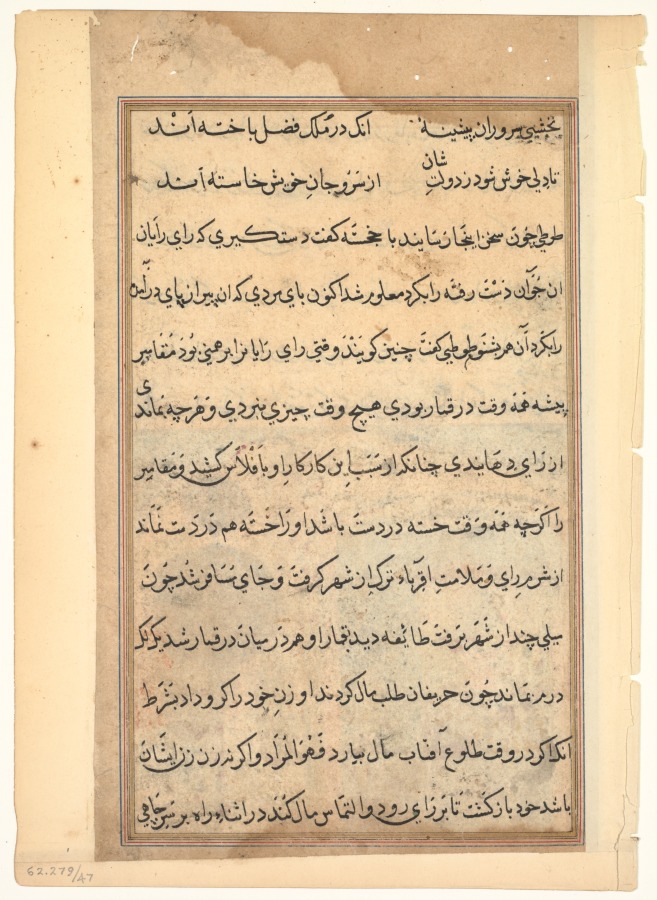 نخشبي سروران پیشینه انک در ملک فضل باخته اند
تا دلي خوش شود ز دولت شان از سر و جان خویش خاسته اند
طوطي چون سخن اینجا رسانید با خجسته کفت دستکیري که راي رایان
ان جوان دست رفته را بکرد معلوم شد اکنون باي مردي که ان پیر از پاي درآمده
را بکرد آن هم بشنو طوطي کفت چنین کویند وقتي راي رایانرا برهمني بود مقامر
پیشه همه وقت در قمار بودي هیچ وقت چیزي نبردي و هرچه نماندي
از راي دهانیدي چنانکه از سبب این کار کار او با فلاس کشید و مقامر
را اکرچه همه وقت خسته در دست باشد او را خسته هم در دست نماند
از شرم راي و ملامت اقرباء ترک از شهر کرفت و جاي مسافر شد چون
میلي چند از شهر برفت طائفه دید بقمار او هم در میان در قمار شد یک تک
درم نماند چون حریفان طلب مال کردند او زن خود را کرو داد بشرط
انک اکر در وقت طلوع آفتاب مال بیارد فهو المراد و اکر نه زن زن ایشان
باشد خود بازکشت تا بر راي رود و التماس مال کند در اثناء راه بر سر چاهي
62.279/47